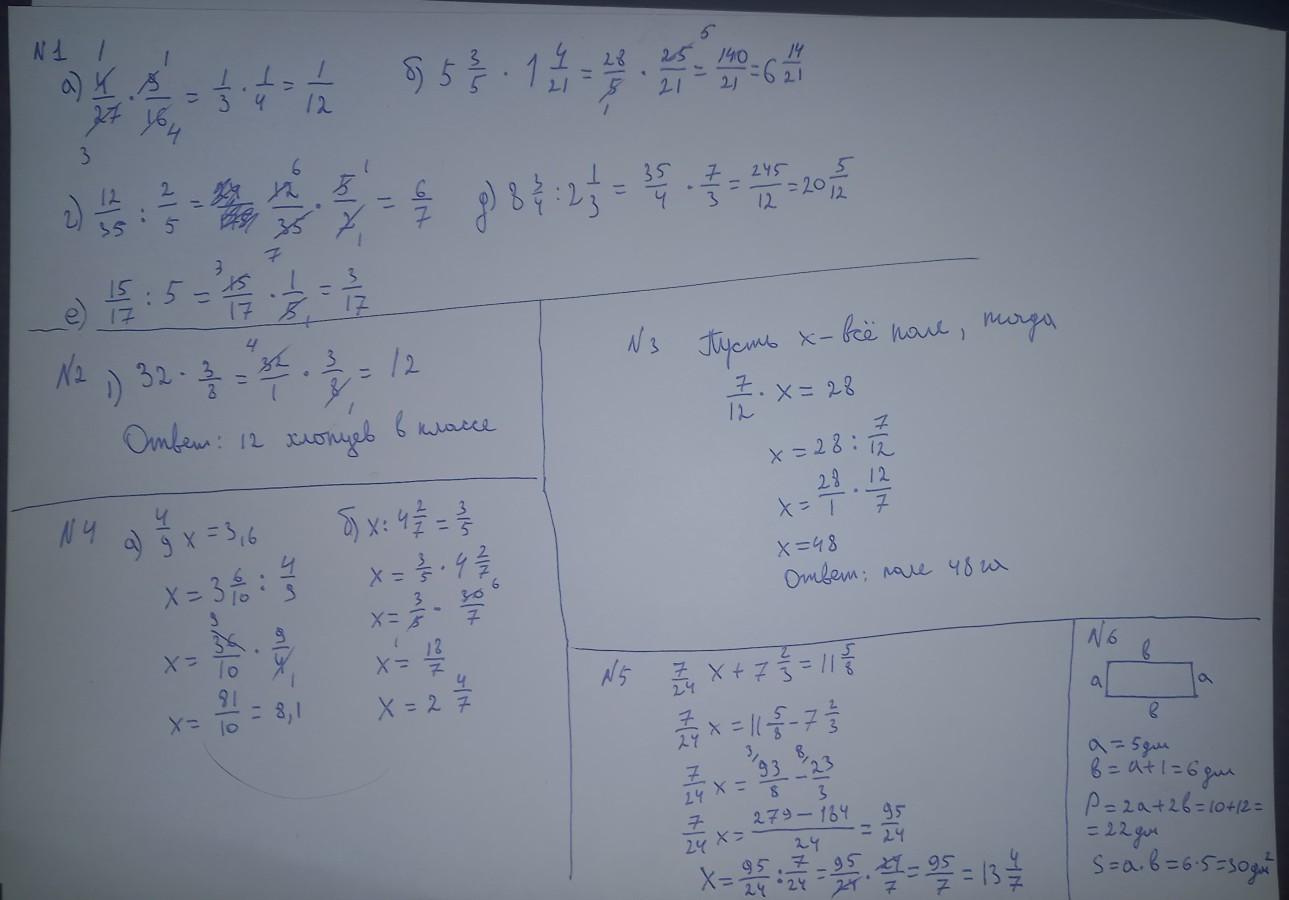 N1 а) 4/27 · 9/16 = 1/3 · 1/4 = 1/12
б) 5 3/5 · 1 4/21 = 28/5 · 25/21 = 140/21 = 6 14/21
г) 12/35 : 2/5 = 12/35 · 5/2 = 6/7
д) 8 3/4 : 2 1/3 = 35/4 · 7/3 = 245/12 = 20 5/12
е) 15/17 : 5 = 15/17 · 1/5 = 3/17
N2 1) 32 · 3/8 = 32/1 · 3/8 = 12
Ответ: 12 хлопцев в классе
N3 Пусть x – всё поле, тогда
7/12 · x = 28
x = 28 : 7/12
x = 28/1 · 12/7
x = 48
Ответ: поле 48 га
N4 а) 4/9 x = 3,6
x = 3 6/10 : 4/9
x = 36/10 · 9/4
x = 81/10 = 8,1
б) x : 4 2/7 = 3/5
x = 3/5 · 4 2/7
x = 3/5 · 30/7
x = 18/7
x = 2 4/7
N5 7/24 x + 7 2/3 = 11 5/8
7/24 x = 11 5/8 - 7 2/3
7/24 x = 93/8 - 23/3
7/24 x = 279 - 184/24 = 95/24
x = 95/24 : 7/24 = 95/24 · 24/7 = 95/7 = 13 4/7
N6
в
а а
в
а = 5 дм
в = а + 1 = 6 дм
P = 2а + 2в = 10 + 12 =
= 22 дм
S = а · в = 6 · 5 = 30 дм²